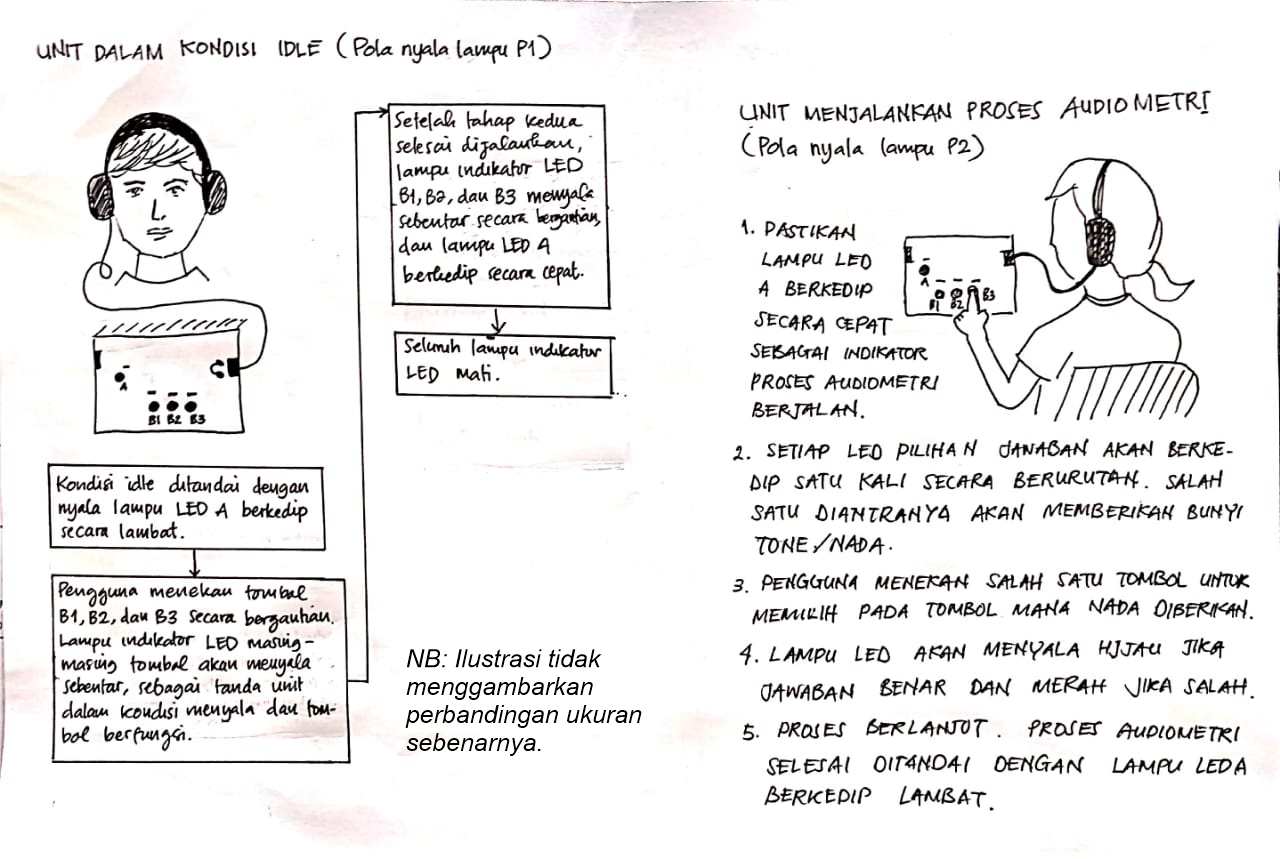 UNIT DALAM KONDISI IDLE (Pola nyala lampu P1)
A
B1 B2 B3
Kondisi idle ditandai dengan
nyala lampu LED A berkedip
secara lambat.
Pengguna menekan tombol
B1, B2, dan B3 secara bergantian.
Lampu indikator LED masing-
masing tombol akan menyala
sebentar, sebagai tanda unit
dalam kondisi menyala dan tom-
bol berfungsi.
Setelah tahap kedua
selesai dijalankan,
lampu indikator LED
B1, B2, dan B3 menyala
sebentar secara bergantian,
dan lampu LED A
berkedip secara cepat.
Seluruh lampu indikator
LED mati.
NB: Ilustrasi tidak
menggambarkan
perbandingan ukuran
sebenarnya.
UNIT MENJALANKAN PROSES AUDIOMETRI
(Pola nyala lampu P2)
A
B1 B2 B3
1. PASTIKAN
LAMPU LED
A BERKEDIP
SECARA CEPAT
SEBAGAI INDIKATOR
PROSES AUDIOMETRI
BERJALAN.
2. SETIAP LED PILIHAN JAWABAN AKAN BERKE-
DIP SATU KALI SECARA BERURUTAN. SALAH
SATU DIANTRANYA AKAN MEMBERIKAN BUNYI
TONE/NADA.
3. PENGGUNA MENEKAN SALAH SATU TOMBOL UNTUK
MEMILIH PADA TOMBOL MANA NADA DIBERIKAN.
4. LAMPU LED AKAN MENYALA HIJAU JIKA
JAWABAN BENAR DAN MERAH JIKA SALAH.
5. PROSES BERLANJUT. PROSES AUDIOMETRI
SELESAI DITANDAI DENGAN LAMPU LED A
BERKEDIP LAMBAT.